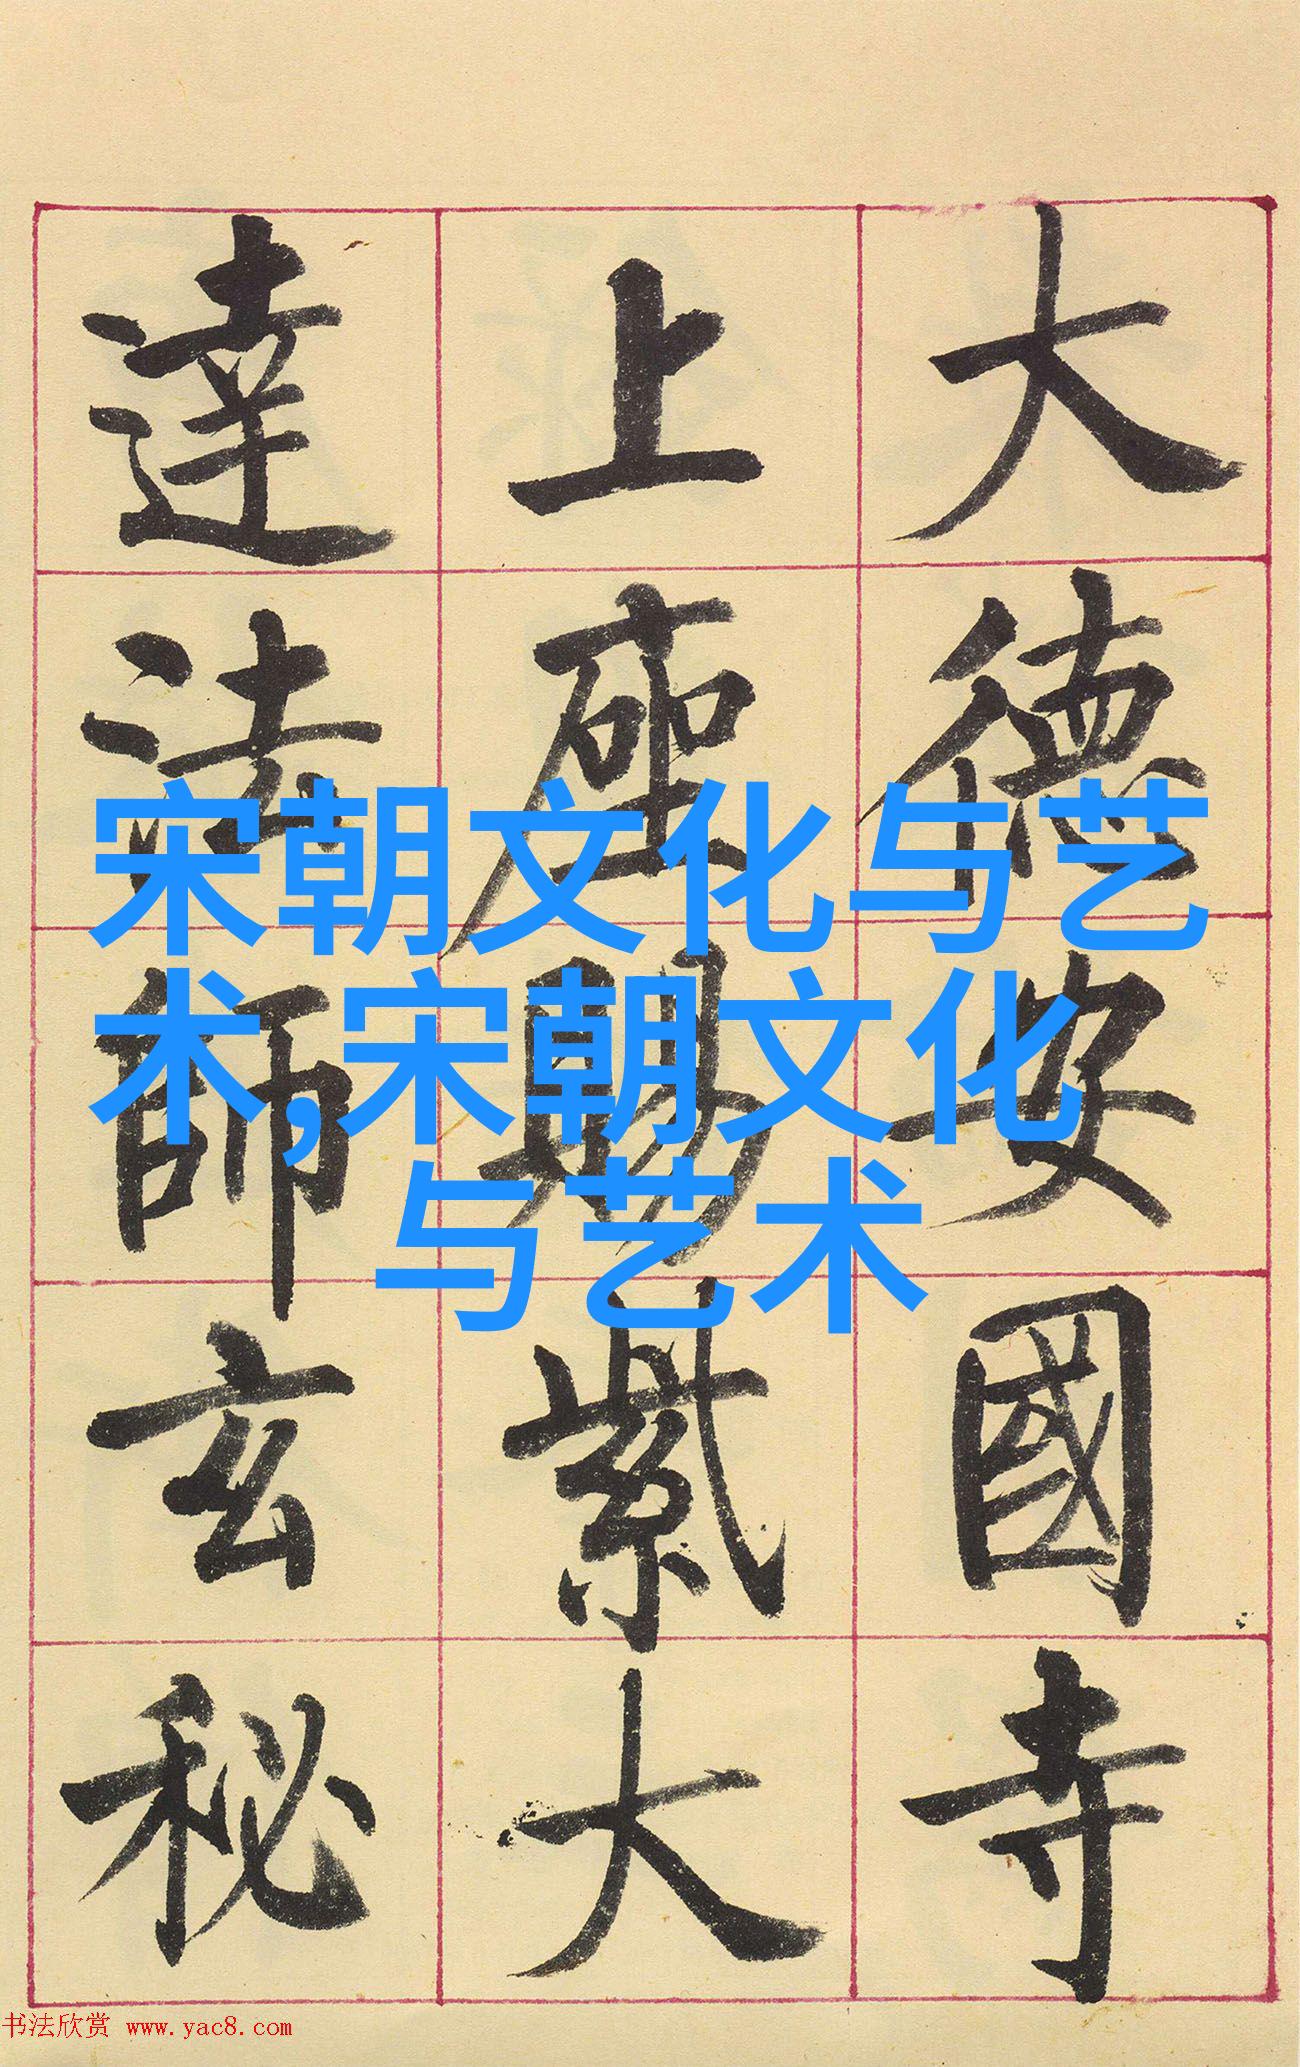 大德安國寺
上座賜紫大
達法師玄秘
宋朝文化与艺
术,宋朝文化
与艺术
书法欣赏 www.yac8.com